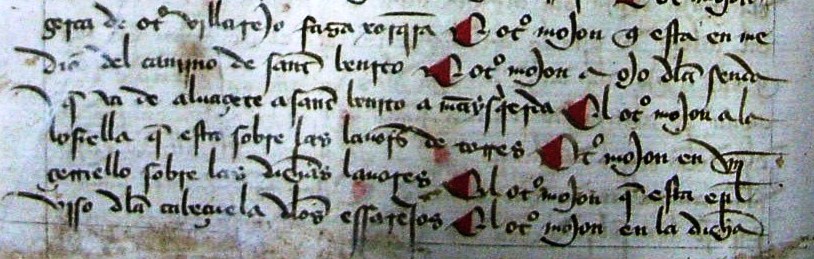 çerca de otº villarejo faza xorq̃ra El otº mojon q̃ esta en me
dio del camino de sant benito El otº mojon a ojo dla senda
q̃ va de aluaçete a sant benito a man ysq̃erda El otº mojon a la
losiella q̃ esta sobre las lauors de torres Otº mojon en vn
çerriello sobre las dichas lauores El otº mojon q̃ esta en l
viso dla cabeçuela dlos essarejos El otº mojon en la dicha